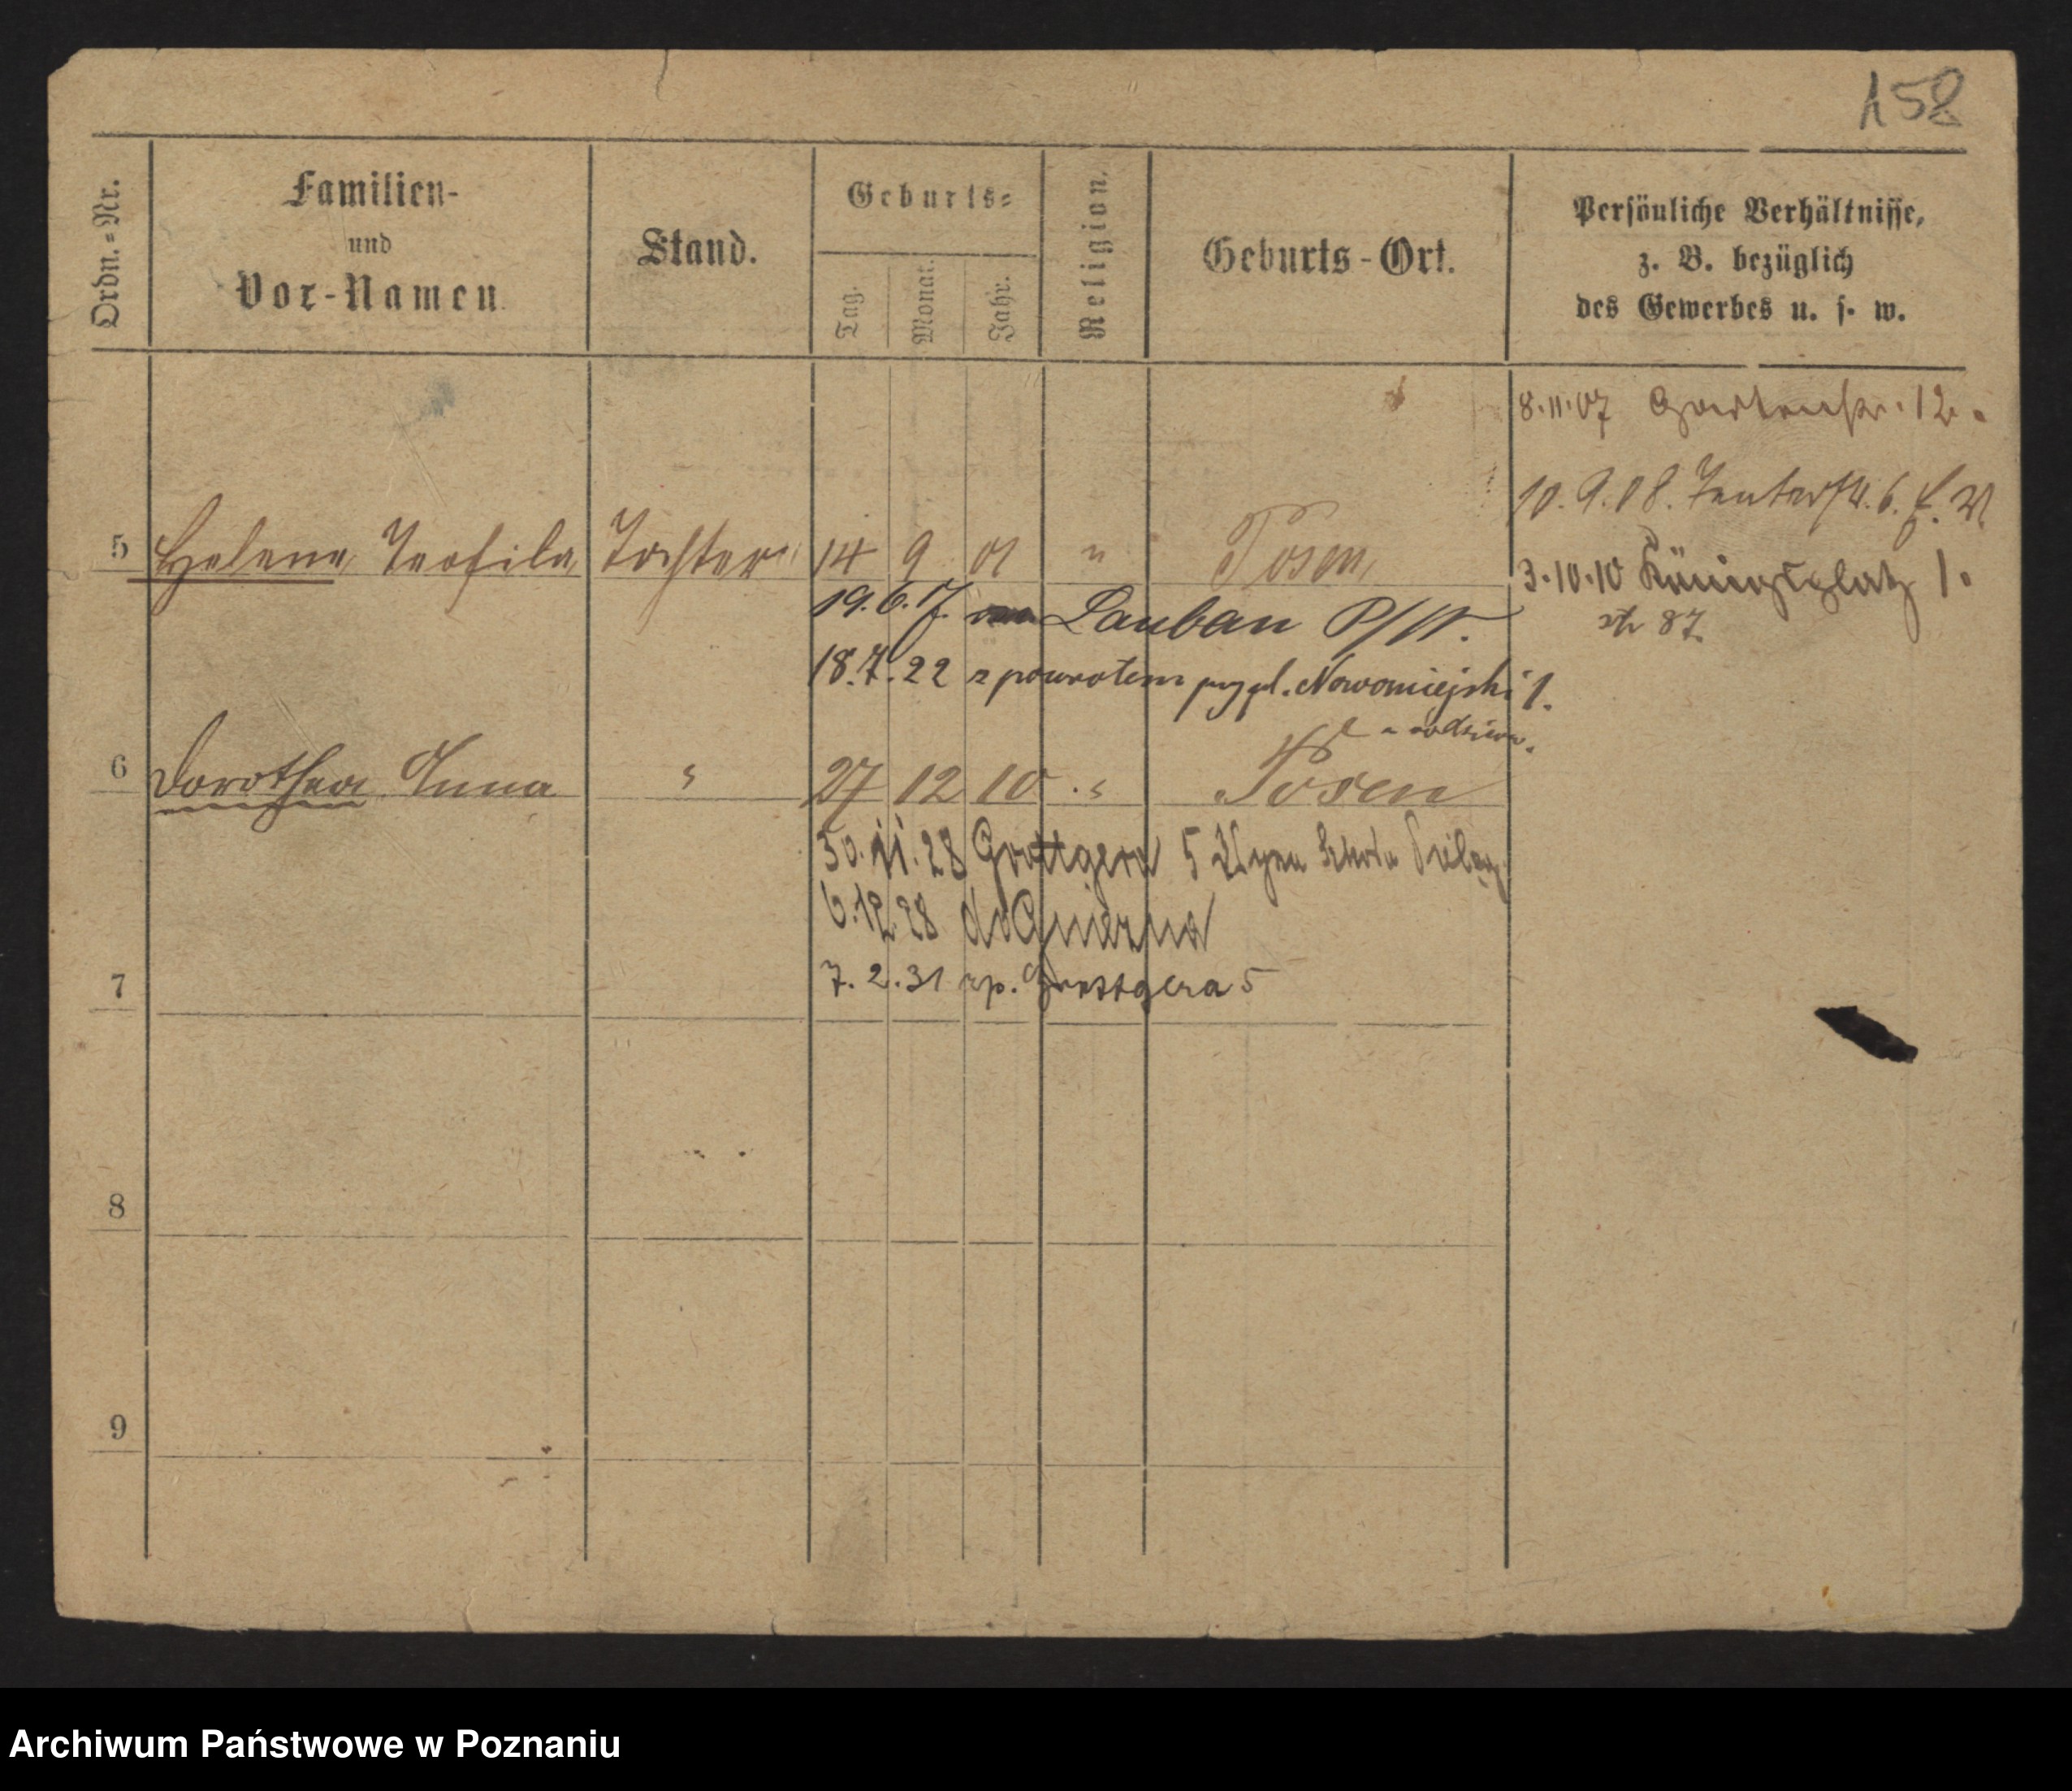 158
Ordn.=Nr.
Familien-
und
Vor-Namen.
Stand.
Geburts=
Tag.
Monat.
Jahr.
Religion.
Geburts-Ort.
Persönliche Verhältnisse,
z. B. bezüglich
des Gewerbes u. s. w.
8.11.07 Gartenstr. 12.
10.9.08.
5 Helene Teofila Tochter 14 9 01 " Posen
3.10.10 Königsplatz 1.
87
19.6.17. Lauban
18.7.22 z powrotem Nowomiejski 1.
6 Dorothea Anna " 27 12 10 " Posen
30.11.28 Grottgera 5
6.12.28 do Gniezna
7
7.2.31 zp. Grottgera 5
8
9
Archiwum Państwowe w Poznaniu